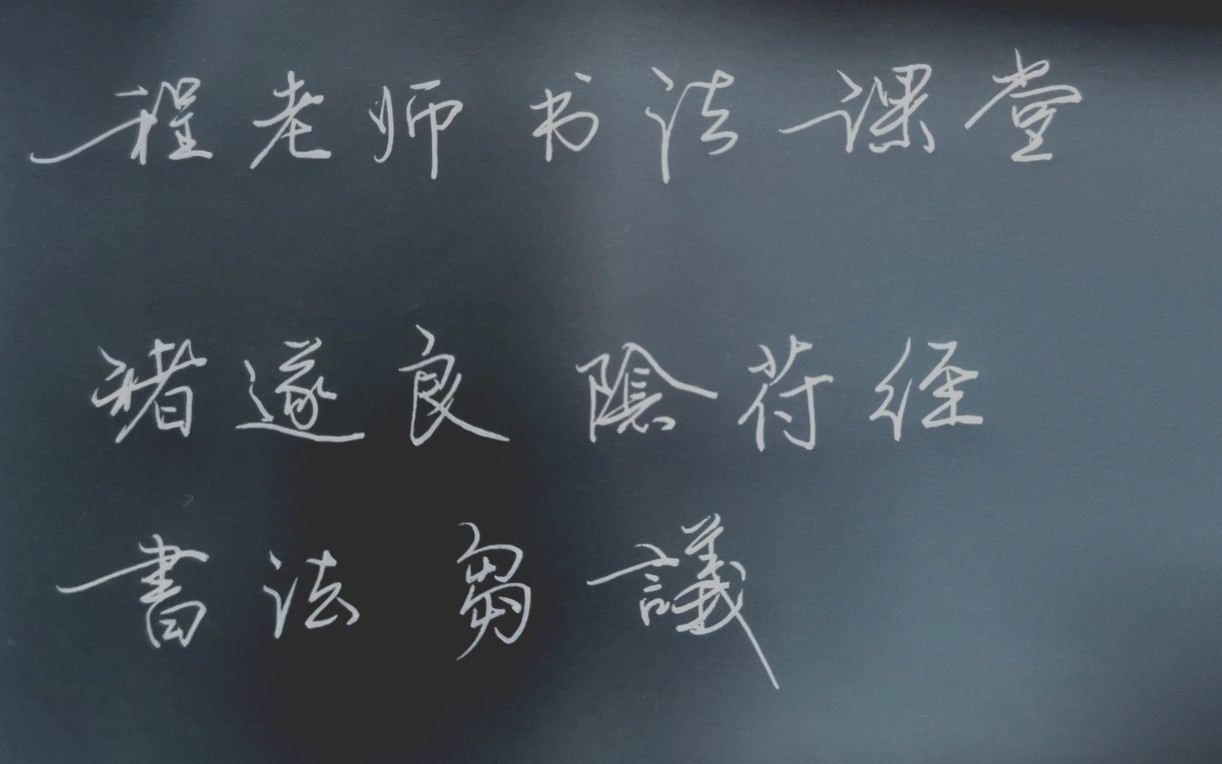 程老师书法课堂
褚遂良 陰苻经
書法 芻議